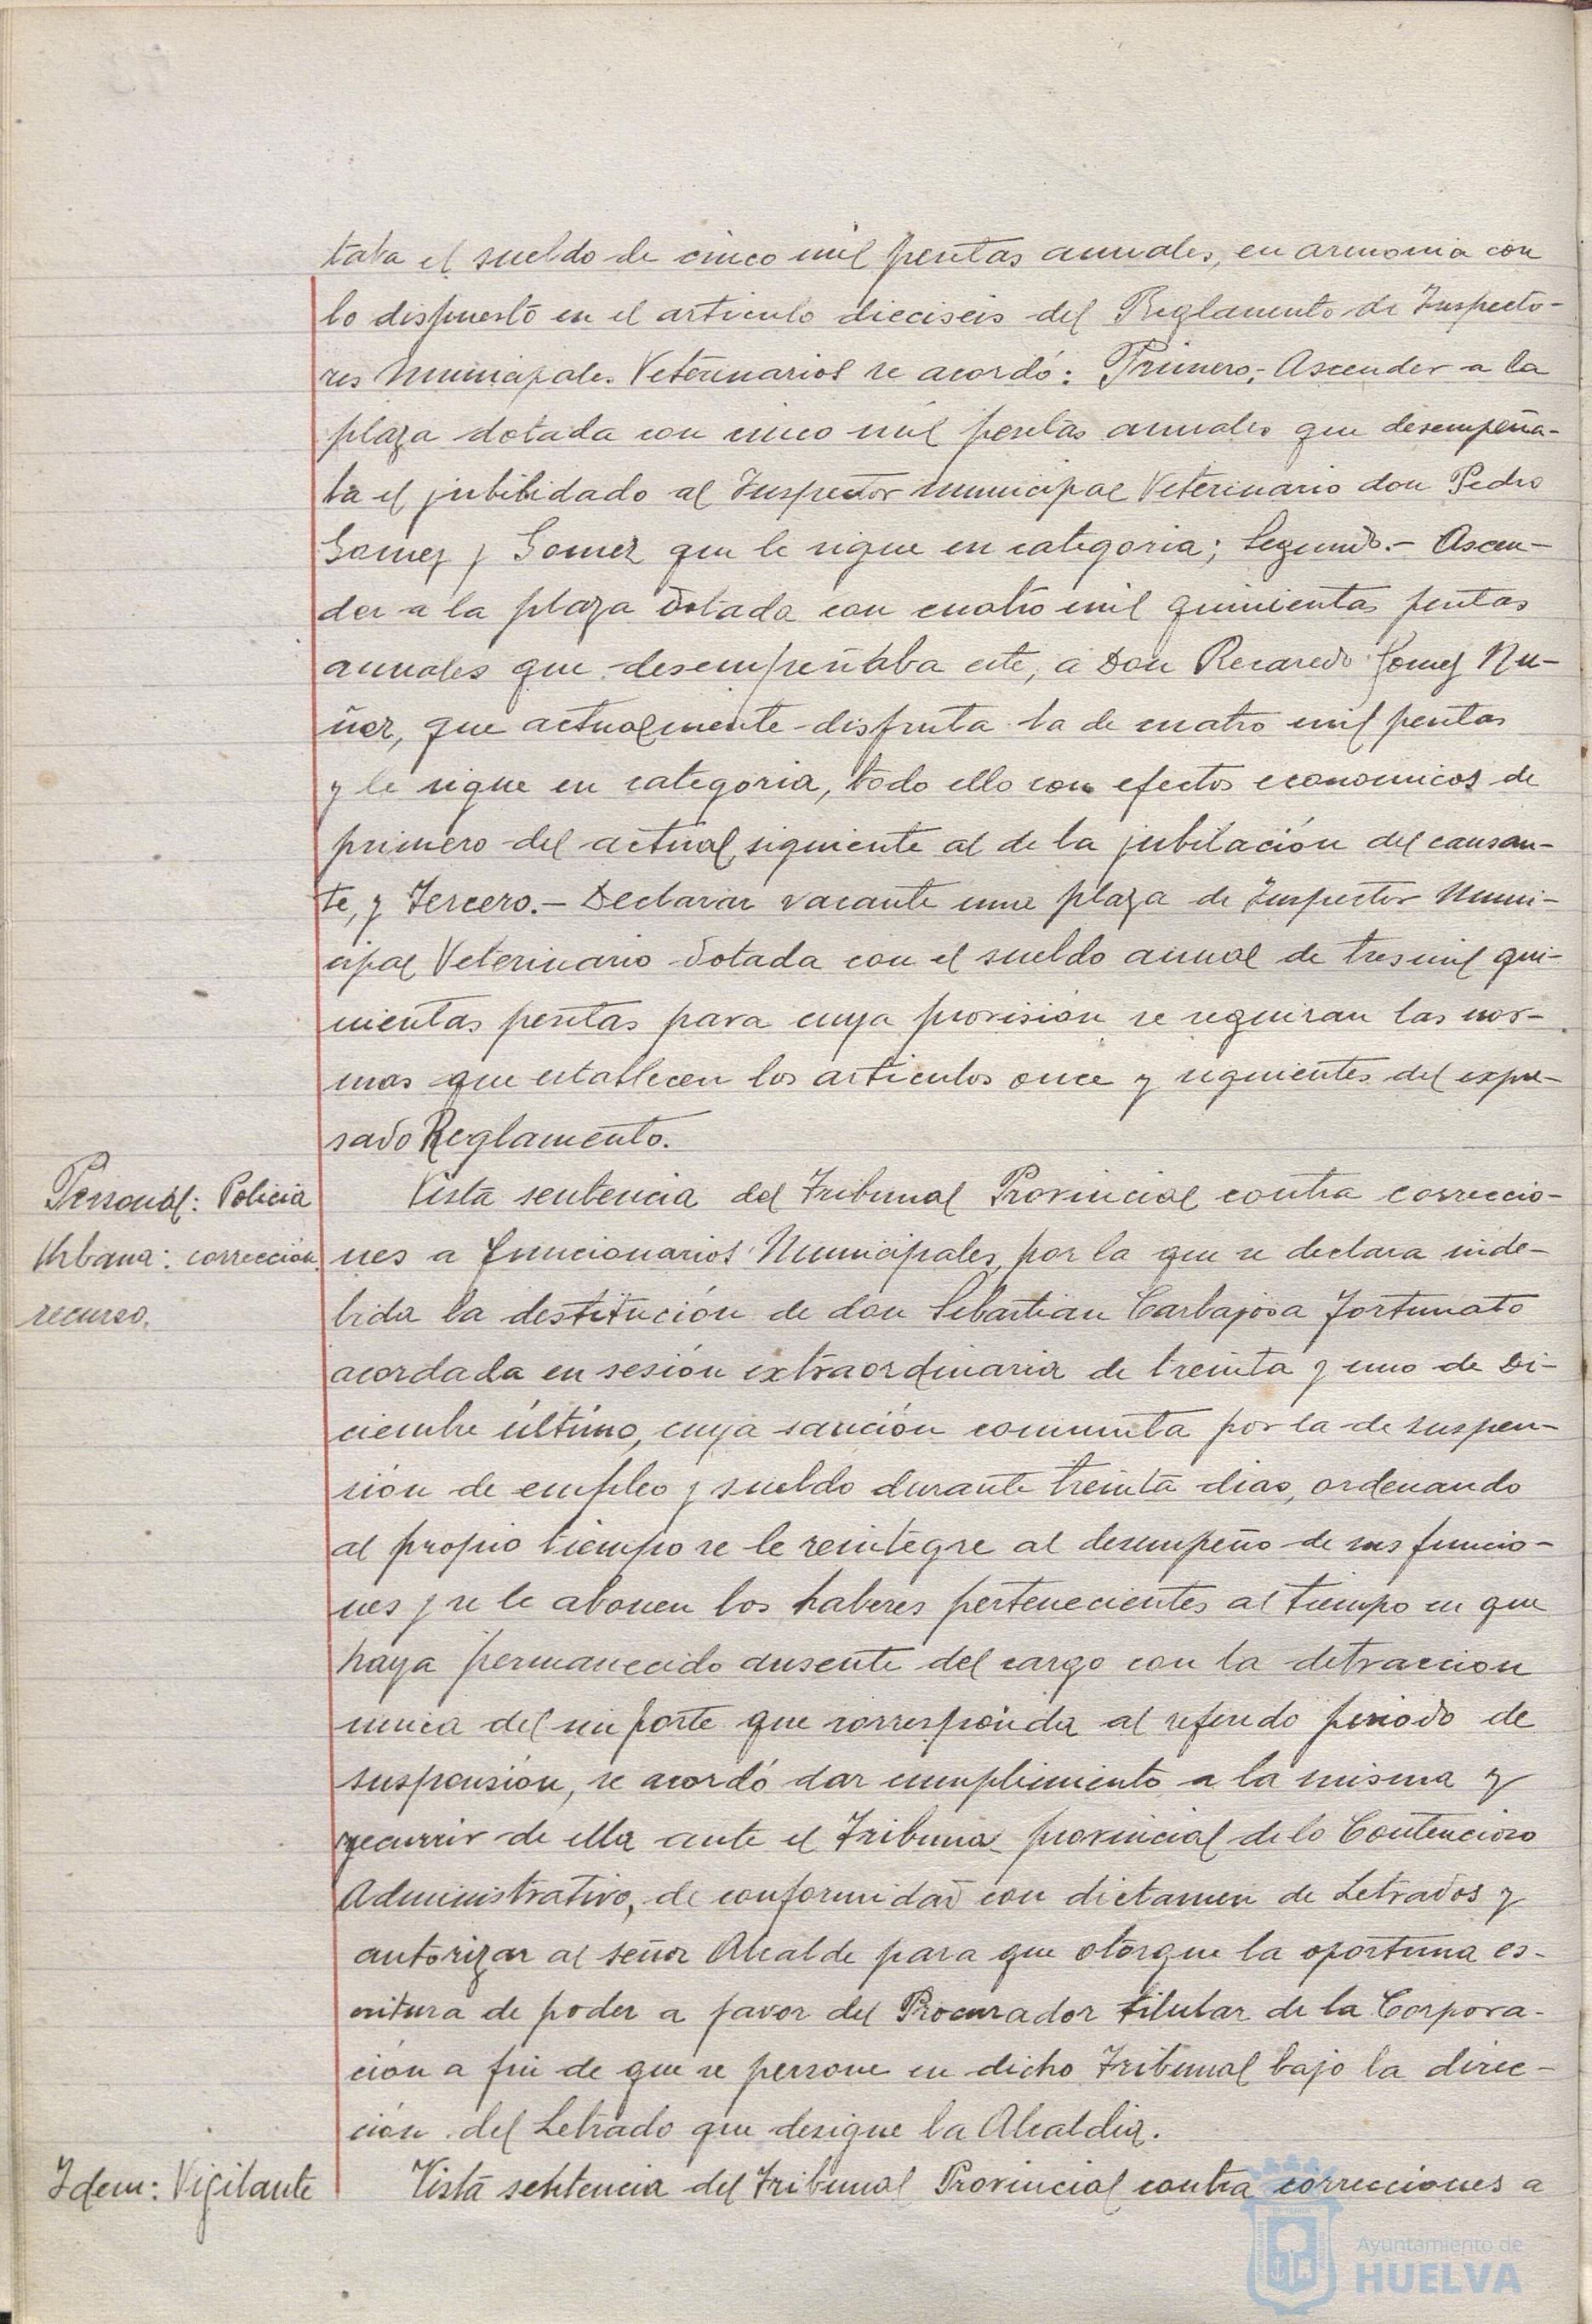 taba el sueldo de cinco mil pesetas anuales, en armonia con
lo dispuesto en el articulo dieciseis del Reglamento de Inspecto-
res Municipales Veterinarios se acordó: Primero.- Ascender a la
plaza dotada con cinco mil pesetas anuales que desempeña-
ba el jubilidado al Inspector municipal Veterinario don Pedro
Gomez y Gomez que le sigue en categoria; Segundo.- Ascen-
der a la plaza dotada con cuatro mil quinientas pesetas
anuales que desempeñaba este, a Don Recaredo Gomez Nu-
ñez, que actualmente disfruta la de cuatro mil pesetas
y le sigue en categoria, todo ello con efectos economicos de
primero del actual, siguiente al de la jubilación del causan-
te, y Tercero.- Declarar vacante una plaza de Inspector Muni-
cipal Veterinario dotada con el sueldo anual de tres mil qui-
nientas pesetas para cuya provisión se seguiran las nor-
mas que establecen los articulos once y siguientes del expre-
sado Reglamento.
Personal: Policia
Urbana: corrección.
recurso.
Vista sentencia del Tribunal Provincial contra correccio-
nes a funcionarios Municipales, por la que se declara inde-
bida la destitución de don Sebastian Carbajosa Fortunato
acordada en sesión extraordinaria de treinta y uno de Di-
ciembre último, cuya sanción conmuta por la de suspen-
sión de empleo y sueldo durante treinta dias, ordenando
al propio tiempo se le reintegre al desempeño de sus funcio-
nes y se le abonen los haberes pertenecientes al tiempo en que
haya permanecido ausente del cargo con la detraccion
unica del importe que corresponda al referido periodo de
suspensión, se acordó dar cumplimiento a la misma y
recurrir de ella ante el Tribunal provincial de lo Contencioso
Administrativo, de conformidad con dictamen de Letrados y
autorizar al señor Alcalde para que otorgue la oportuna es-
critura de poder a favor del Procurador titular de la Corpora-
ción a fin de que se persone en dicho Tribunal bajo la direc-
ción del Letrado que designe la Alcaldia.
Idem: Vigilante
Vista sentencia del Tribunal Provincial contra correcciones a
Ayuntamiento de
HUELVA